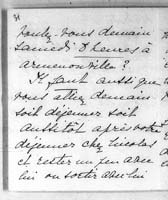 voulez-vous demain
samedi 3 heures à
armenonville?
Il faut aussi que
vous alliez demain
soit déjeuner soit
aussitôt après votre
déjeuner chez Nicolas
et rester un peu avec
lui ou sortir avec lui